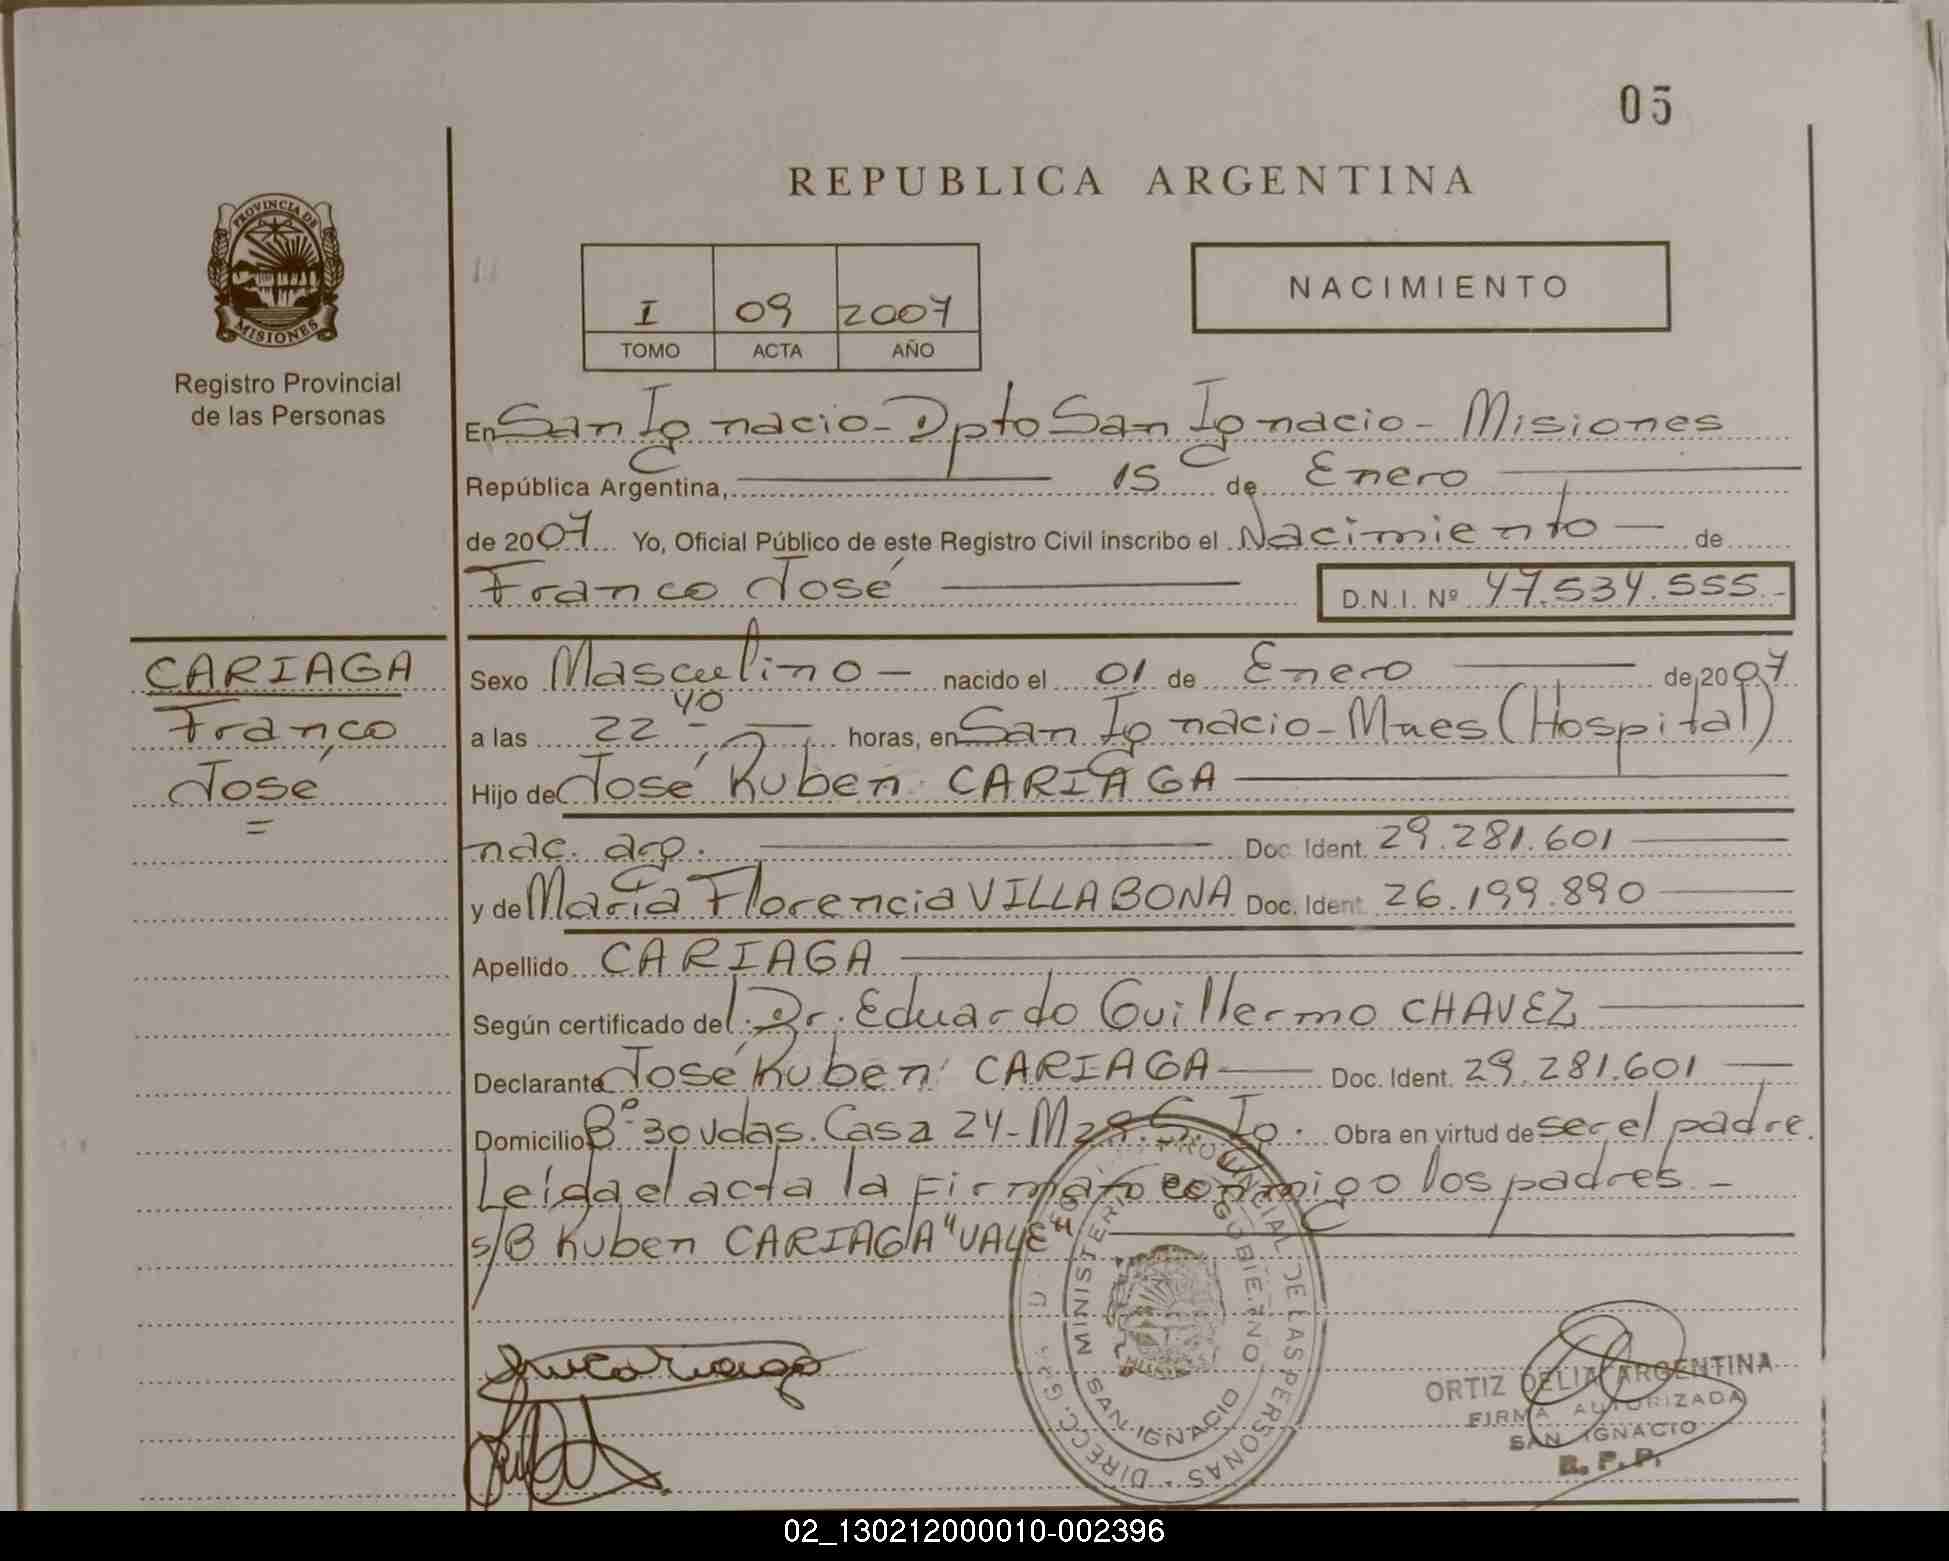 05
REPUBLICA ARGENTINA
PROVINCIA DE
MISIONES
Registro Provincial
de las Personas
I 09 2007
TOMO ACTA AÑO
NACIMIENTO
En San Ignacio - Dpto San Ignacio - Misiones
República Argentina, 15 de Enero
de 2007 Yo, Oficial Público de este Registro Civil inscribo el Nacimiento de
Franco José D.N.I. Nº 47.534.555.-
CARIAGA
Franco
José
=
Sexo Masculino - nacido el 01 de Enero de 2007
a las 22 40 horas, en San Ignacio - Mnes (Hospital)
Hijo de José Ruben CARIAGA
nac. arg. Doc. Ident. 29.281.601
y de María Florencia VILLABONA Doc. Ident. 26.199.890
Apellido CARIAGA
Según certificado del Dr. Eduardo Guillermo CHAVEZ
Declarante José Ruben CARIAGA Doc. Ident. 29.281.601
Domicilio Bº 30 vdas. Casa 24 - S. Ig. Obra en virtud de ser el padre.
Leída el acta la Firman conmigo los padres. -
s/B Ruben CARIAGA "VALE"
PROVINCIAL DE LAS PERSONAS - DIRECC. GRAL.
MINISTERIO GOBIERNO
SAN IGNACIO
ORTIZ DELIA ARGENTINA
FIRMA AUTORIZADA
SAN IGNACIO
R. P. P.
02_130212000010-002396